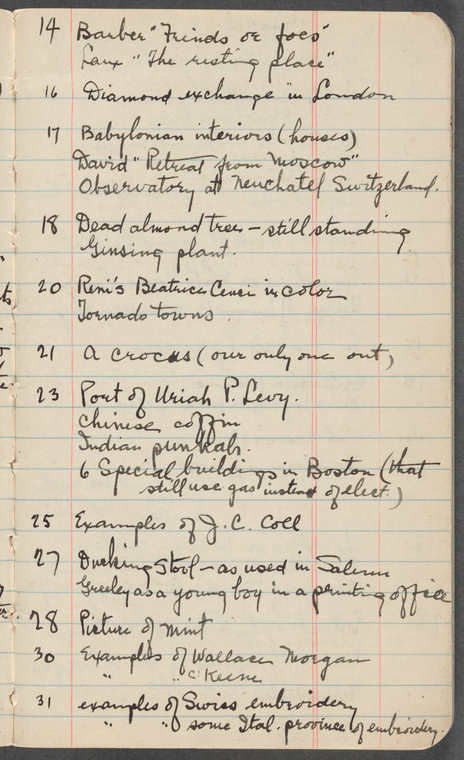 14 Barber "Frinds or foes"
Laux "The resting place"
16 Diamond exchange in London
17 Babylonian interiors (houses)
David "Retreat from Moscow"
Observatory at Neuchatel Switzerland.
18 Dead almond trees - still standing
Ginsing plant.
20 Reni's Beatrice Cenci in color
Tornado towns.
21 A crocus (our only one out)
23 Port of Uriah P. Levy.
Chinese coffin
Indian punkah.
6 Special buildings in Boston (that
still use gas instead of elect.)
25 Examples of J. C. Coll
27 Ducking stool - as used in Salem
Greeley as a young boy in a printing office
28 Picture of mint
30 Examples of Wallace Morgan
" " C Keene
31 examples of Swiss embroidery
" " some Ital. province of embroidery.